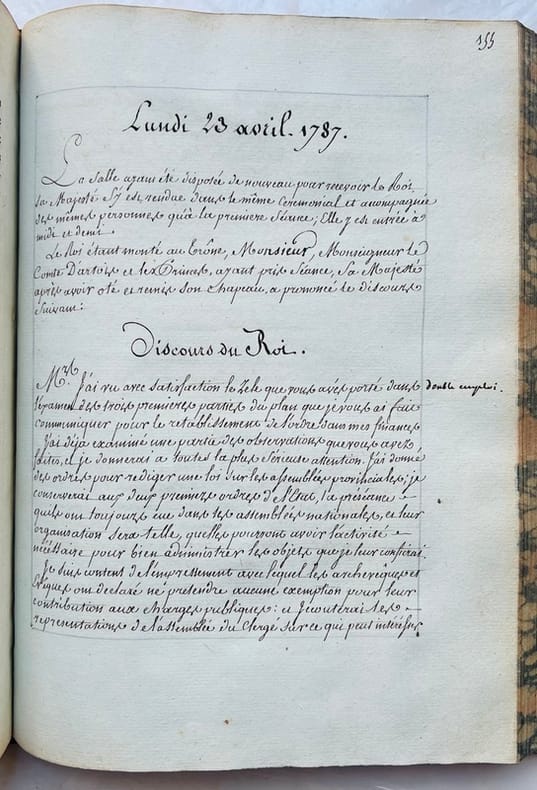 155
Lundi 23 avril. 1787.
La Salle ayant été disposée de nouveau pour recevoir le Roi,
sa Majesté s'y est rendue dans le même cérémonial et acompagnée
des mêmes personnes qu'à la premiere Séance; Elle y est entrée à
midi et demi.
Le Roi étant monté au Trône, Monsieur, Monseigneur le
Comte D'artois et les Princes, ayant pris séance, Sa Majesté
après avoir oté et remis son Chapeau, a prononcé le discours
suivant:
Discours du Roi.
Mrs. J'ai vu avec satisfaction le Zele que vous avez porté dans double emploi.
l'examen des trois premieres parties du plan que je vous ai fait
communiquer pour le retablissement de l'ordre dans mes finances
J'ai déja examiné une partie des observations que vous avez
faites, et je donnerai a toutes la plus sérieuse attention. J'ai donné
des ordres pour rediger une loi sur les assemblées provinciales; je
conserverai aux deux premiers ordres de l'Etat, la préséance
qu'ils ont toujours eue dans les assemblées nationales, et leur
organisation sera telle, quelles pourront avoir l'activité
nécéssaire pour bien administrer les objets que je leur confierai.
Je suis content de l'empressement avec lequel les archevêques et
Evêques ont declaré ne prétendre aucune exemption pour leur
contribution aux charges publiques: et j'écouterai les
représentations de l'assemblée du Clergé sur ce qui peut intéresser